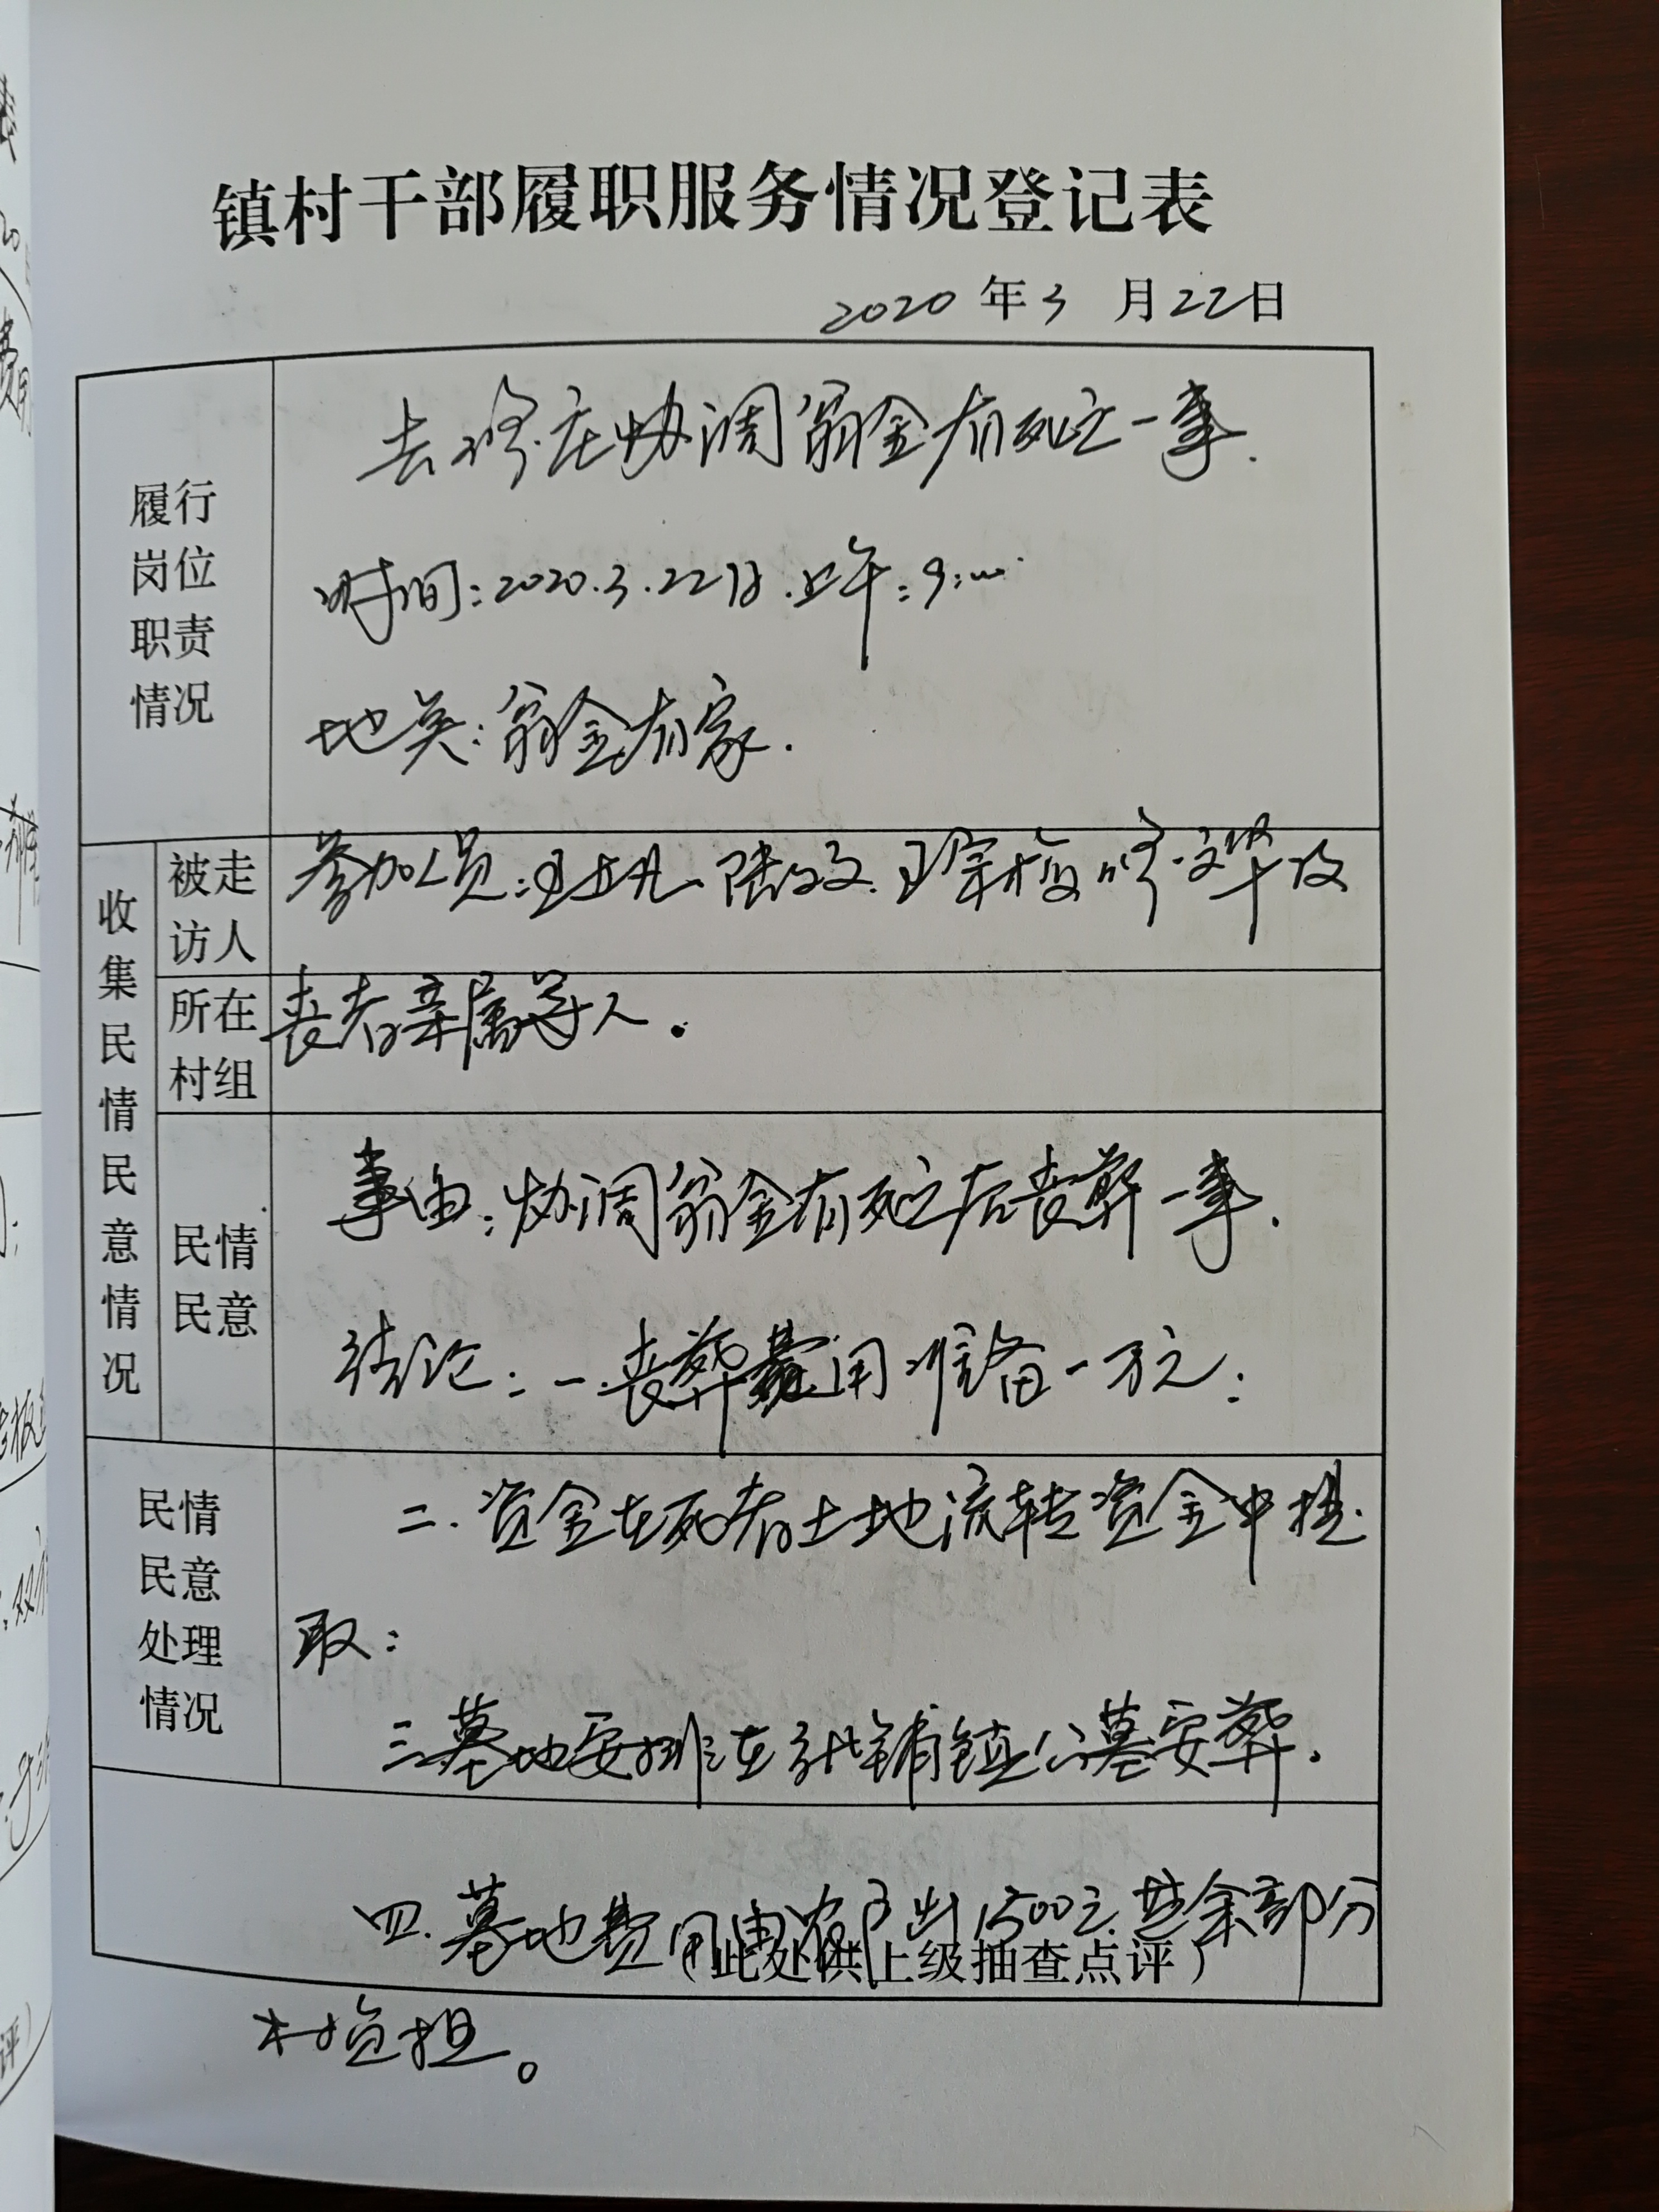 镇村干部履职服务情况登记表
2020 年 3 月 22 日
履行
岗位
职责
情况
去 庄协调翁金有死亡一事.
时间:2020.3.22日.上午:9:00.
地点:翁金有家.
收集民情民意情况
被走
访人
参加人员: 及
所在
村组
丧者亲属等人.
民情
民意
事由:协调翁金有死亡后丧葬一事.
结论:一.丧葬费用准备一万元;
民情
民意
处理
情况
二.资金在死者土地流转资金中提
取;
三墓地安排在 铺镇公墓安葬.
四.墓地费用由农户出1500元.其余部分
(此处供上级抽查点评)
村负担。